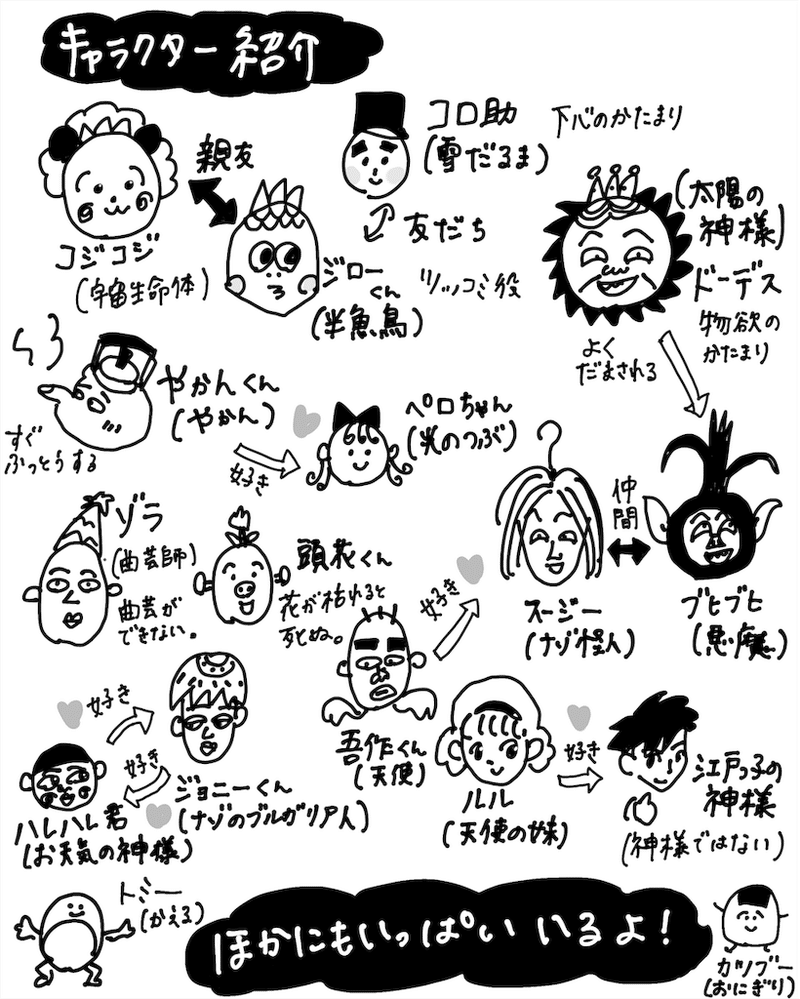 キャラクター紹介
コロ助
(雪だるま)
下心のかたまり
親友
友だち
コジコジ
(宇宙生命体)
ジローくん
(半魚鳥)
ツッコミ役
(太陽の
神様)
ドーデス
物欲の
かたまり
よく
だまされる
やかんくん
(やかん)
すぐ
ふっとうする
好き
ペロちゃん
(光のつぶ)
ゾラ
(曲芸師)
曲芸が
できない。
頭花くん
花が枯れると
死ぬ。
好き
スージー
(ナゾ怪人)
仲間
ブヒブヒ
(悪魔)
好き
好き
ハレハレ君
(お天気の神様)
ジョニーくん
(ナゾのブルガリア人)
吾作くん
(天使)
ルル
(天使の妹)
好き
江戸っ子の
神様
(神様ではない)
トミー
(かえる)
ほかにもいっぱいいるよ!
カツブー
(おにぎり)